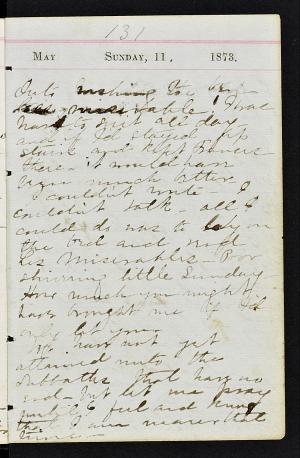 131
May Sunday, 11, 1873.
miserable! I was
hard to spit all day
and if I'd stayed up
stairs and kept
there. it would have
been much better
I couldn't write - I
couldn't talk - all I
could do was to lay on
the bed and read
Les Miserables - Poor
shivering little Sunday
How much you might
have brought me if I'd
only let you.
I have not yet
attained unto the
Sabbaths that have no
end - but let me pray
feel and know
that I am nearer that
time -